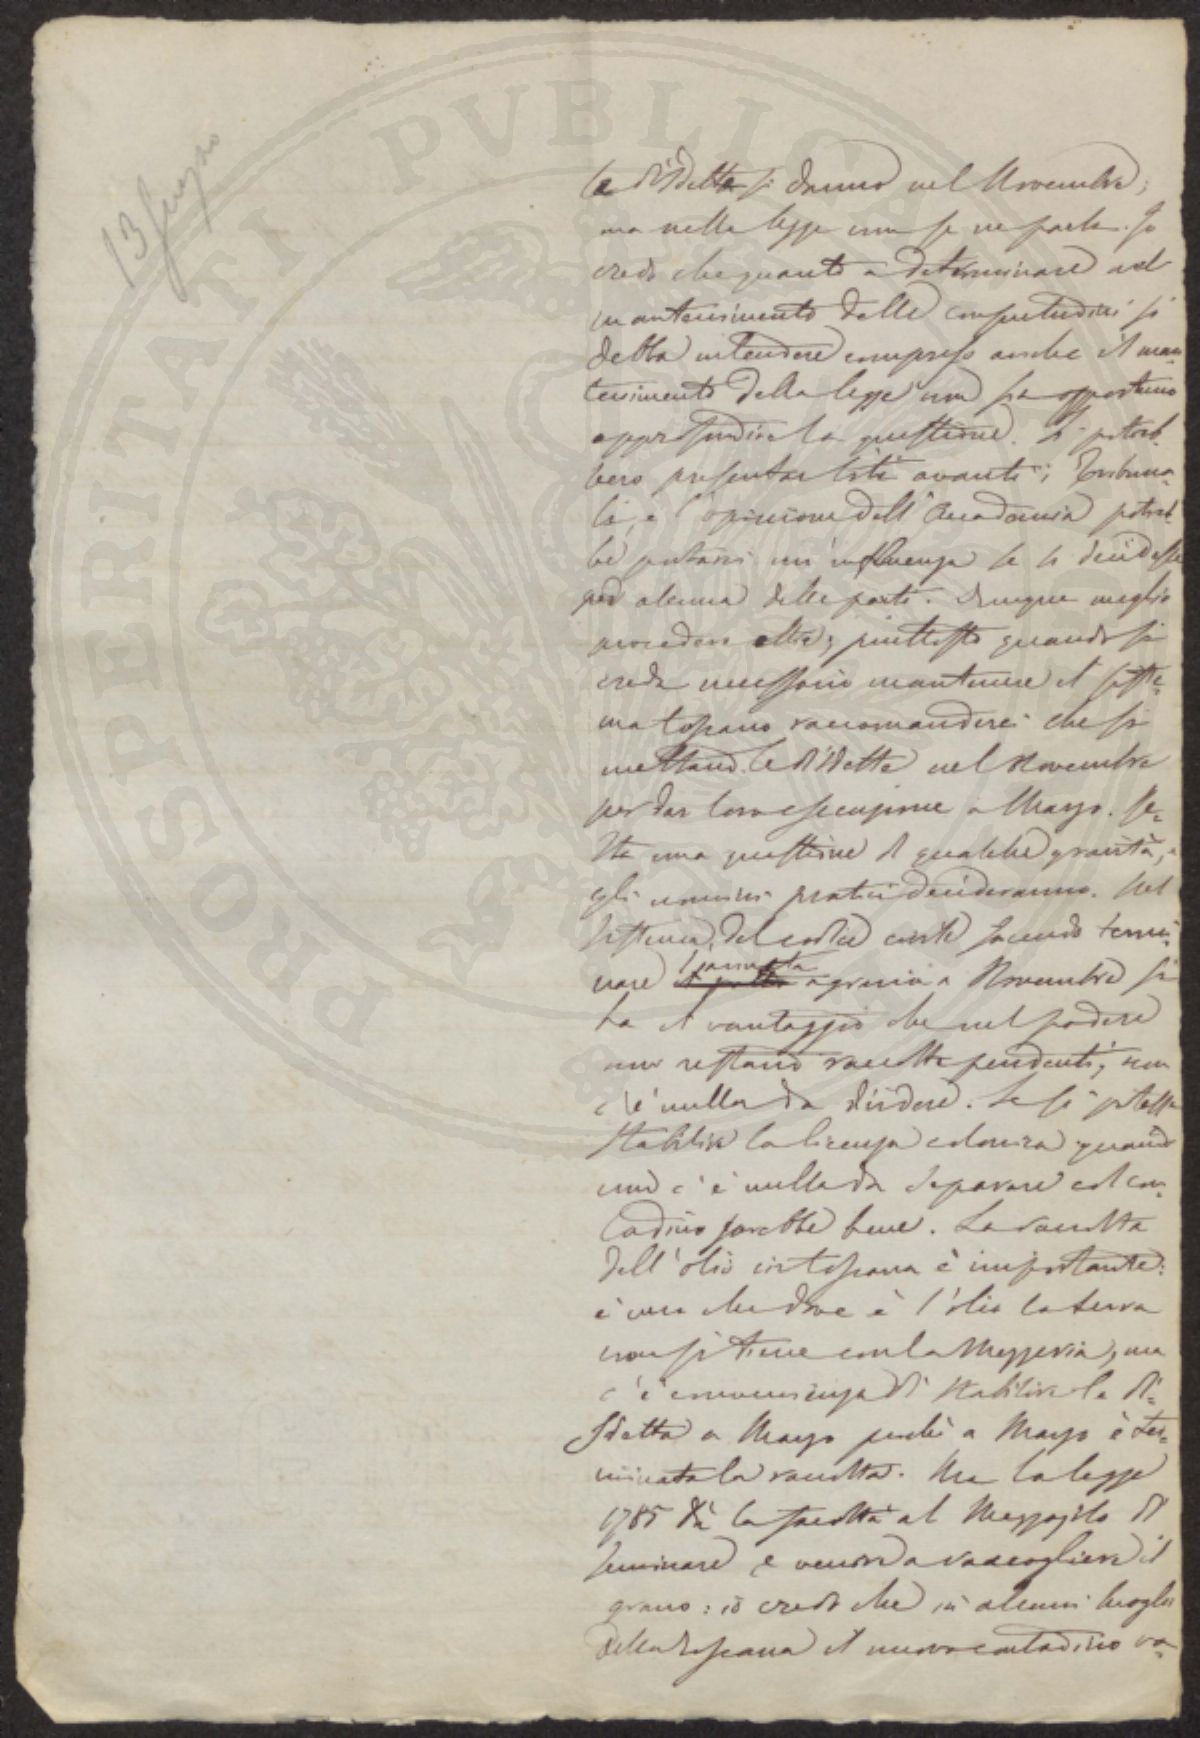 13 Giugno
PROSPERITATI PVBLICAE
le disdette si danno nel Novembre;
ma nella legge non se ne parla. Io
credo che quanto a determinare nel
mantenimento delle consuetudini si
debba intendere compreso anche il man=
tenimento della legge non sia opportuno
approfondire la questione. Si potreb=
bero presentar liti avanti i Tribuna=
li, e l'opinione dell'Accademia potreb=
be portarci un'influenza se si decidesse
per alcuna delle parti. Dunque meglio
procedere oltre; piuttosto quando si
creda necessario mantenere il siste=
ma toscano raccomanderei che si
mettano le disdette nel Novembre
per dar loro esecuzione a Marzo. Re=
sta una questione di qualche gravità, e
gli uomini pratici decideranno. Nel
sistema del codice civile facendo termi=
nare l'annata agraria a Novembre si
ha il vantaggio che nel podere
non restano raccolte pendenti, non
c'è nulla da dividere. Se si potesse
stabilire la licenza colonica quando
non c'è nulla da separare col con=
tadino sarebbe bene. La raccolta
dell'olio in toscana è importante:
è vero che dove è l'olio la terra
non si tiene con la Mezzeria, ma
c'è convenienza di stabilire la di=
sdetta a Marzo perchè a Marzo è ter=
minata la raccolta. Ma la legge
1785 dà la facoltà al Mezzajolo di
seminare e venire a raccogliere il
grano: io credo che in alcuni luoghi
della toscana il nuovo contadino va=